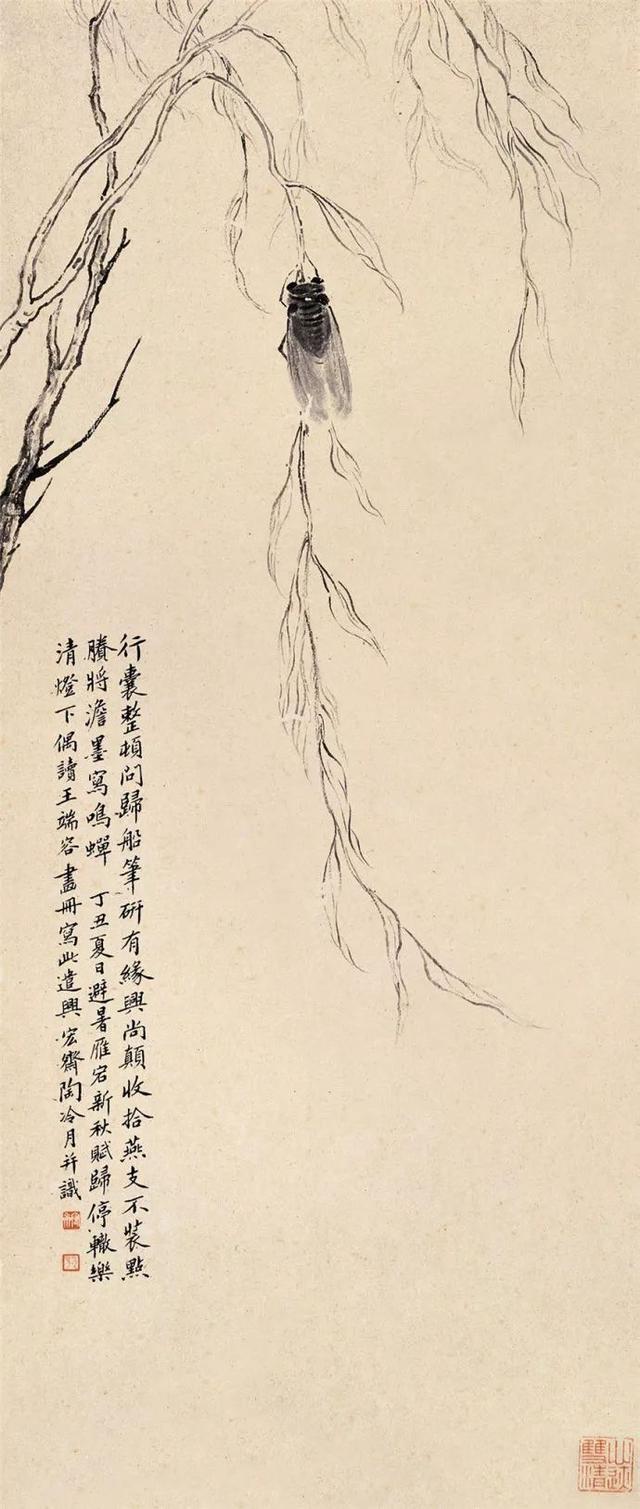 行囊整頓問歸船筆研有緣興尚顛收拾燕支不裝點
賸將澹墨寫鳴蟬 丁丑夏日避暑雁宕新秋賦歸停轍樂
清燈下偶讀王端容畫冊寫此遣興宏齋陶冷月并識
雙清